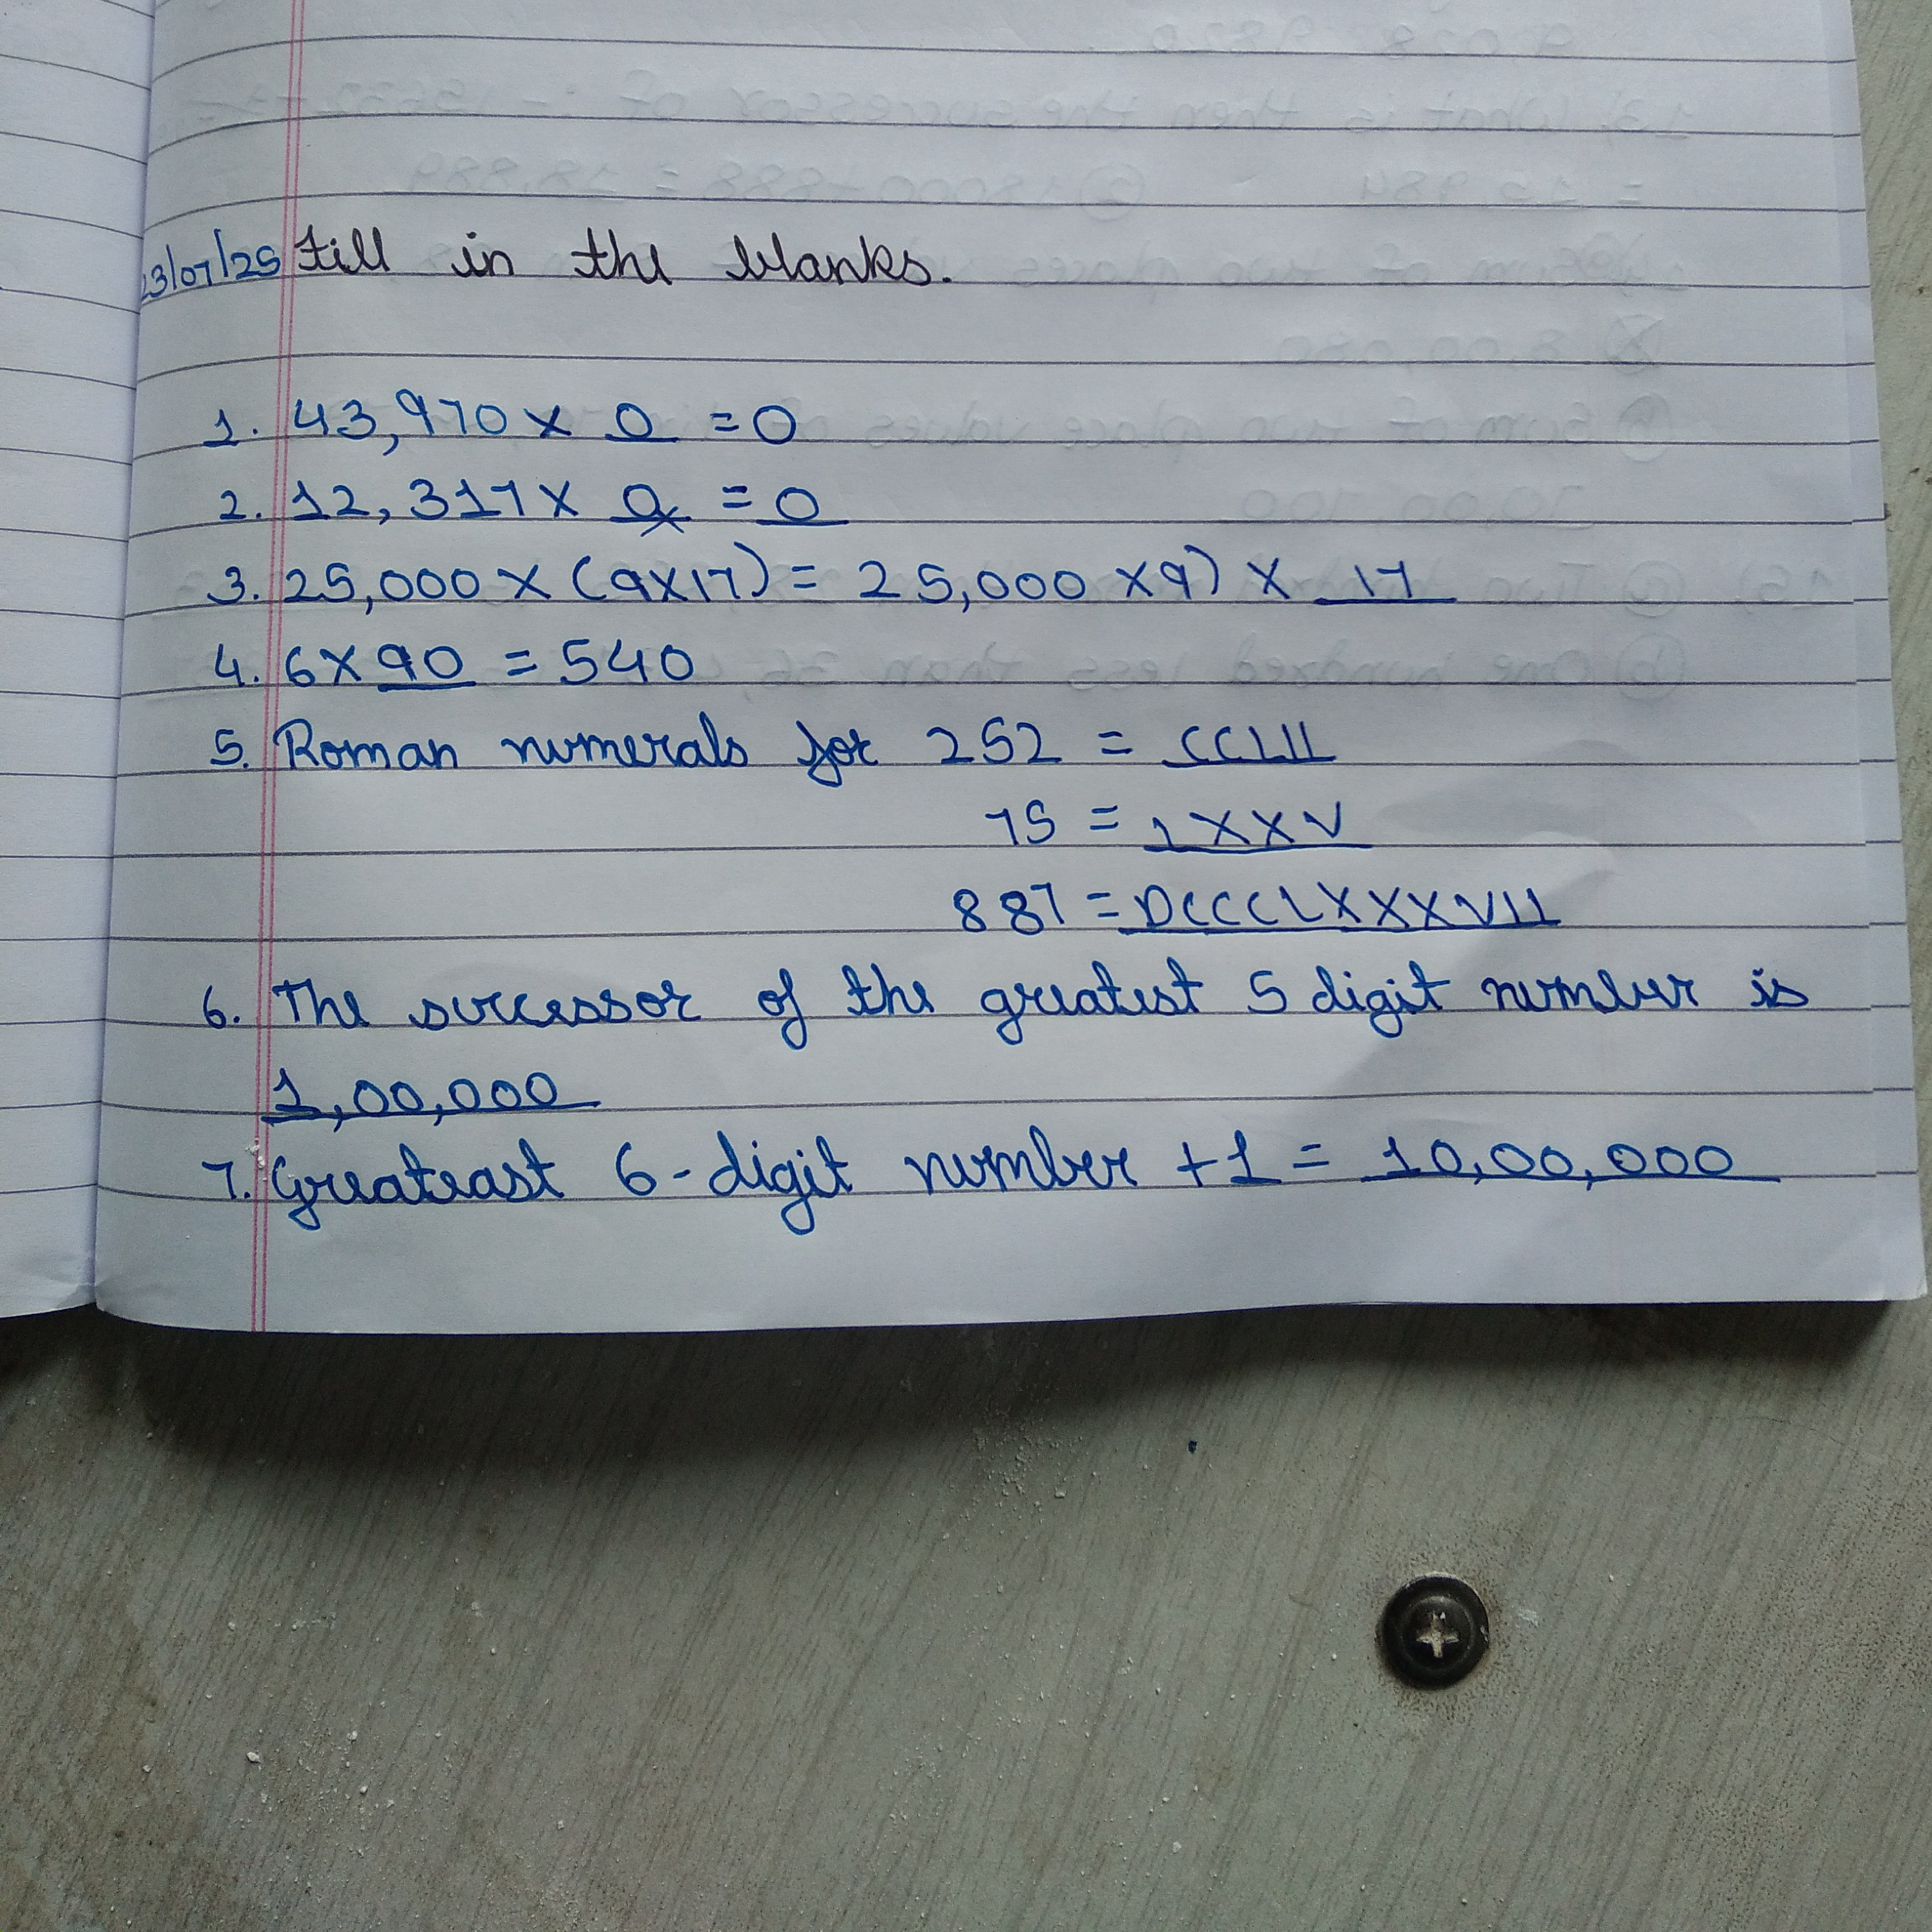 23/07/25 Fill in the blanks.
1. 43,970 × 0 = 0
2. 12,317 × 0 = 0
3. 25,000 × (9×17) = 25,000 ×9) × 17
4. 6×90 = 540
5. Roman numerals for 252 = CCLII
75 = LXXV
887 = DCCCLXXXVII
6. The successor of the greatest 5 digit number is
1,00,000
7. Greateast 6-digit number +1 = 10,00,000